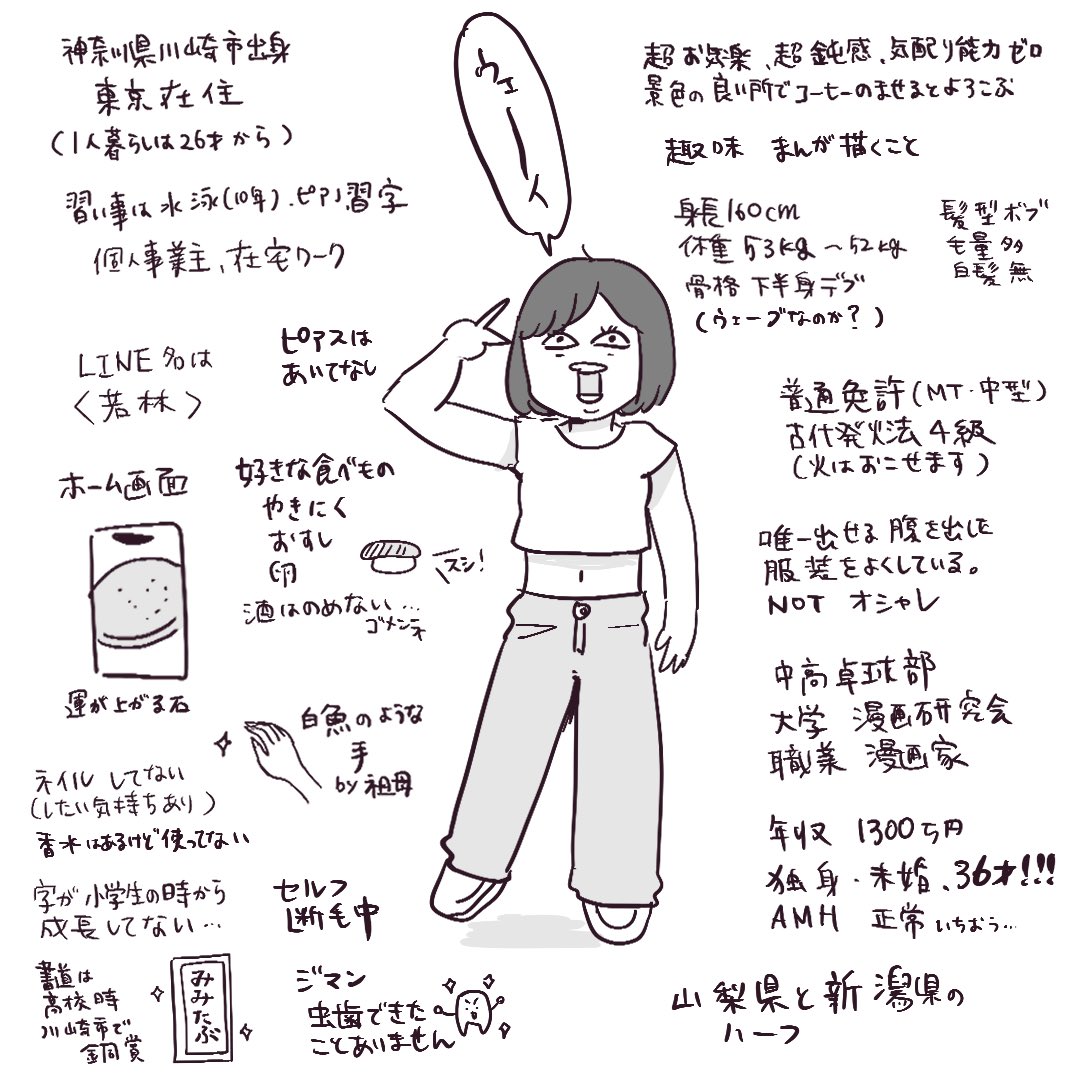 神奈川県川崎市出身
東京在住
(1人暮らしは26才から)
習い事は水泳(10年)、ピアノ習字
個人事業主、在宅ワーク
LINE名は
〈若林〉
ピアスは
あいてなし
ホーム画面
運が上がる石
好きな食べもの
やきにく
おすし
卵
スシ!
酒はのめない…
ゴメンネ
白魚のような
手
by祖母
ネイルしてない
(したい気持ちあり)
香水はあるけど使ってない
字が小学生の時から
成長してない…
セルフ
断毛中
書道は
高校時
川崎市で
銅賞
みみたぶ
ジマン
虫歯できた
ことありません
ウェーイ
超お気楽、超鈍感、気配り能力ゼロ
景色の良い所でコーヒーのませるとよろこぶ
趣味 まんが描くこと
身長160cm
体重53kg〜52kg
骨格 下半身デブ
(ウェーブなのか?)
髪型ボブ
毛量多
白髪無
普通免許(MT・中型)
古代発火法4級
(火はおこせます)
唯一出せる腹を出した
服装をよくしている。
NOT オシャレ
中高卓球部
大学 漫画研究会
職業 漫画家
年収 1300万円
独身・未婚、36才!!!
AMH 正常 いちおう…
山梨県と新潟県の
ハーフ